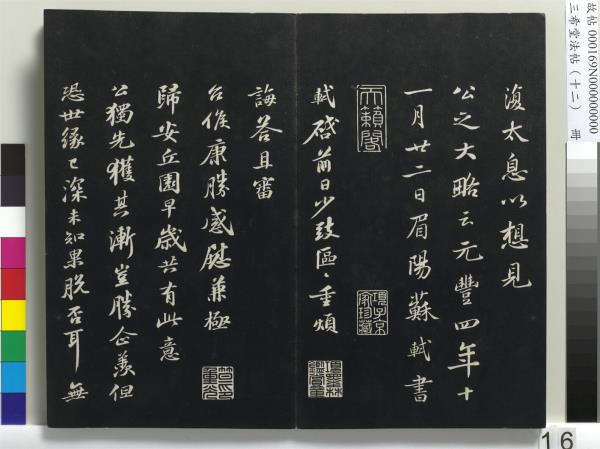 復太息以想見
公之大略云元豐四年十
一月廿二日眉陽蘇軾書
天籟閣
項子京家珍藏
軾啓前日少致區〻重煩
項墨林鑑賞章
誨答且審
台候康勝感慰兼極
歸安丘園早歲共有此意
公獨先獲其漸豈勝企羨但
恐世緣已深未知果脫否耳無
故帖 000169N000000000
三希堂法帖(十二) 冊
16